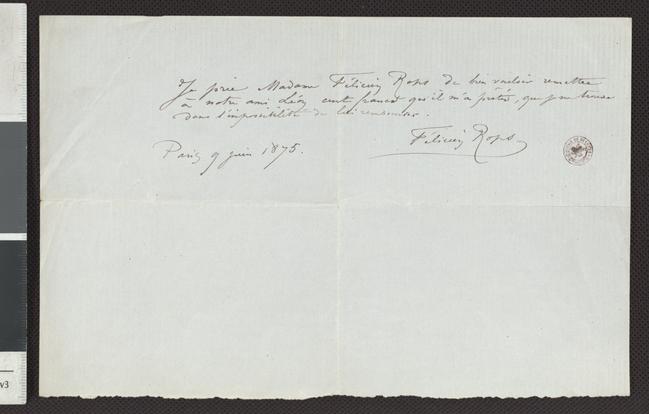 Je prie Madame Félicien Rops de bien vouloir remettre
à notre ami Léon cent francs qu'il m'a prêtés, que je me trouve
dans l'impossibilité de lui rembourser.
Félicien Rops
Paris 9 juin 1875.
v3